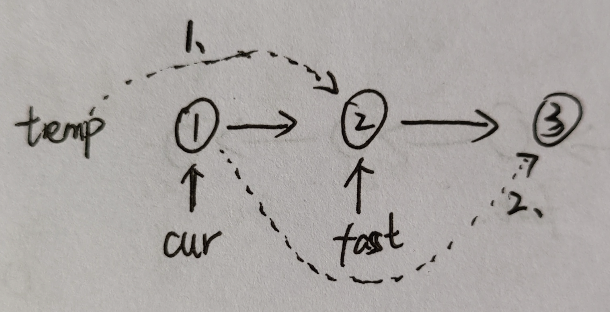 1、
temp ① → ② → ③
2、
cur fast